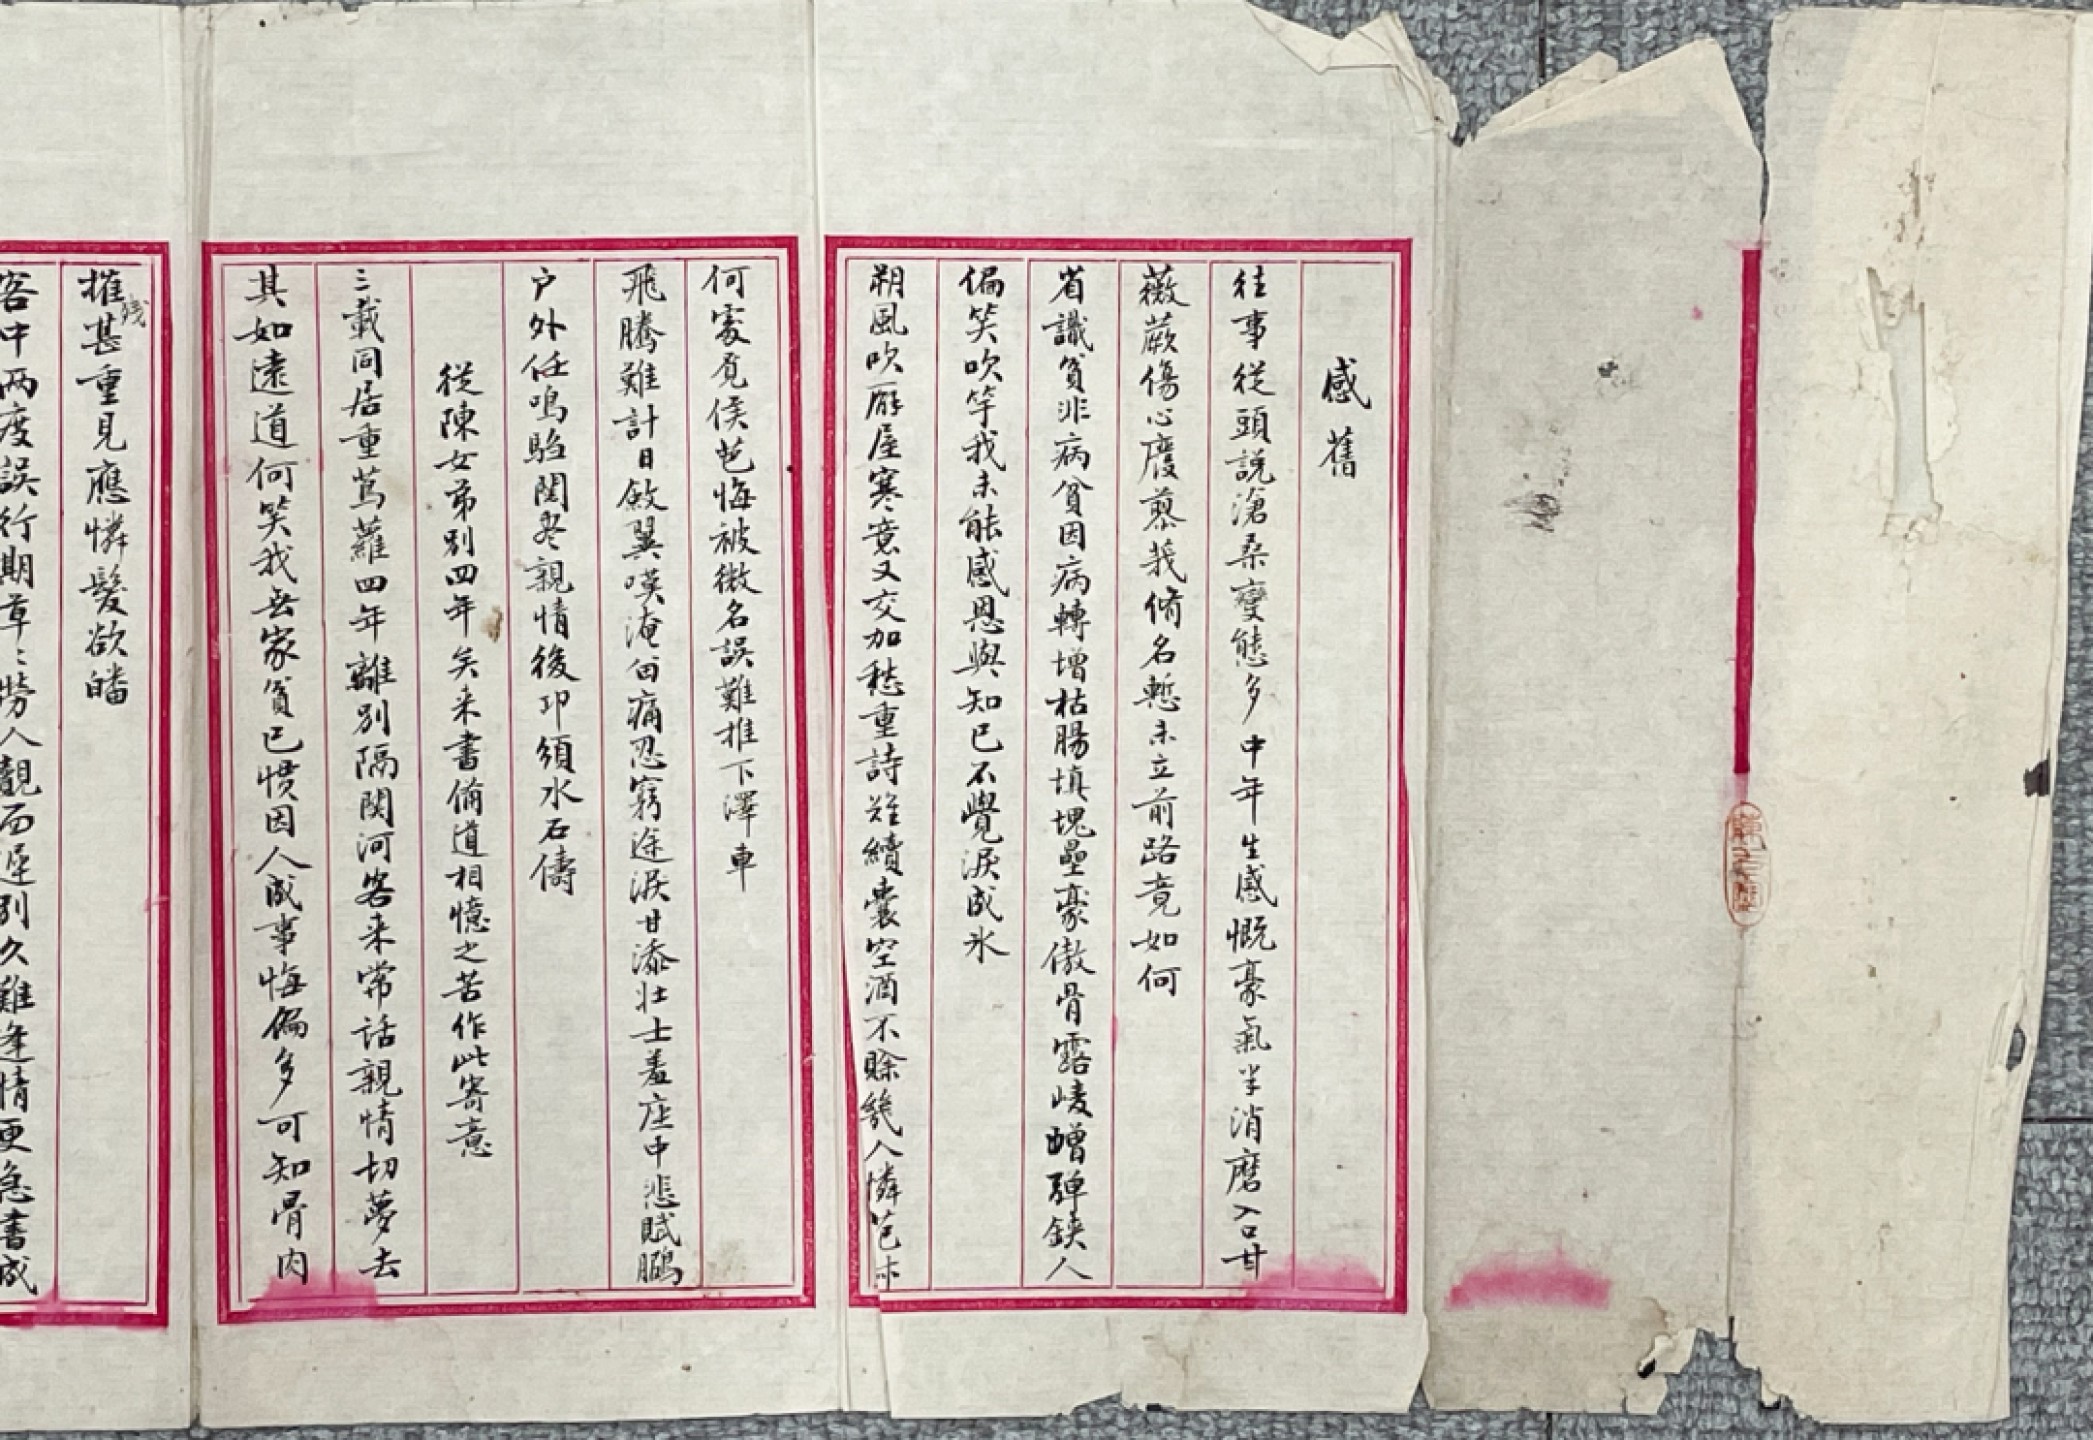 感舊
往事從頭說滄桑變態多中年生感慨豪氣半消磨入口甘
薇蕨傷心廢蓼莪脩名慙未立前路竟如何
省識貧非病貧因病轉增枯腸填塊壘豪傲骨露崚嶒彈鋏人
偏笑吹竽我未能感恩與知已不覺淚成氷
朔風吹厈屋寒意又交加愁重詩难續囊空酒不賒幾人憐范叔
何處覓侯芭悔被微名誤難推下澤車
飛騰難計日斂翼嘆淹留痛忍窮途淚甘添壯士羞座中悲賦鵩
户外任鳴騶閱盡親情後印須水石儔
從陳女弟别四年矣来書備道相憶之苦作此寄意
三載同居重蔦蘿四年離别隔関河客来常話親情切夢去
其如遠道何笑我無家貧已慣因人成事悔偏多可知骨肉
摧殘甚重見應憐髮欲皤
客中两度誤行期草〻勞人覯面遲别久難逢情更急書成